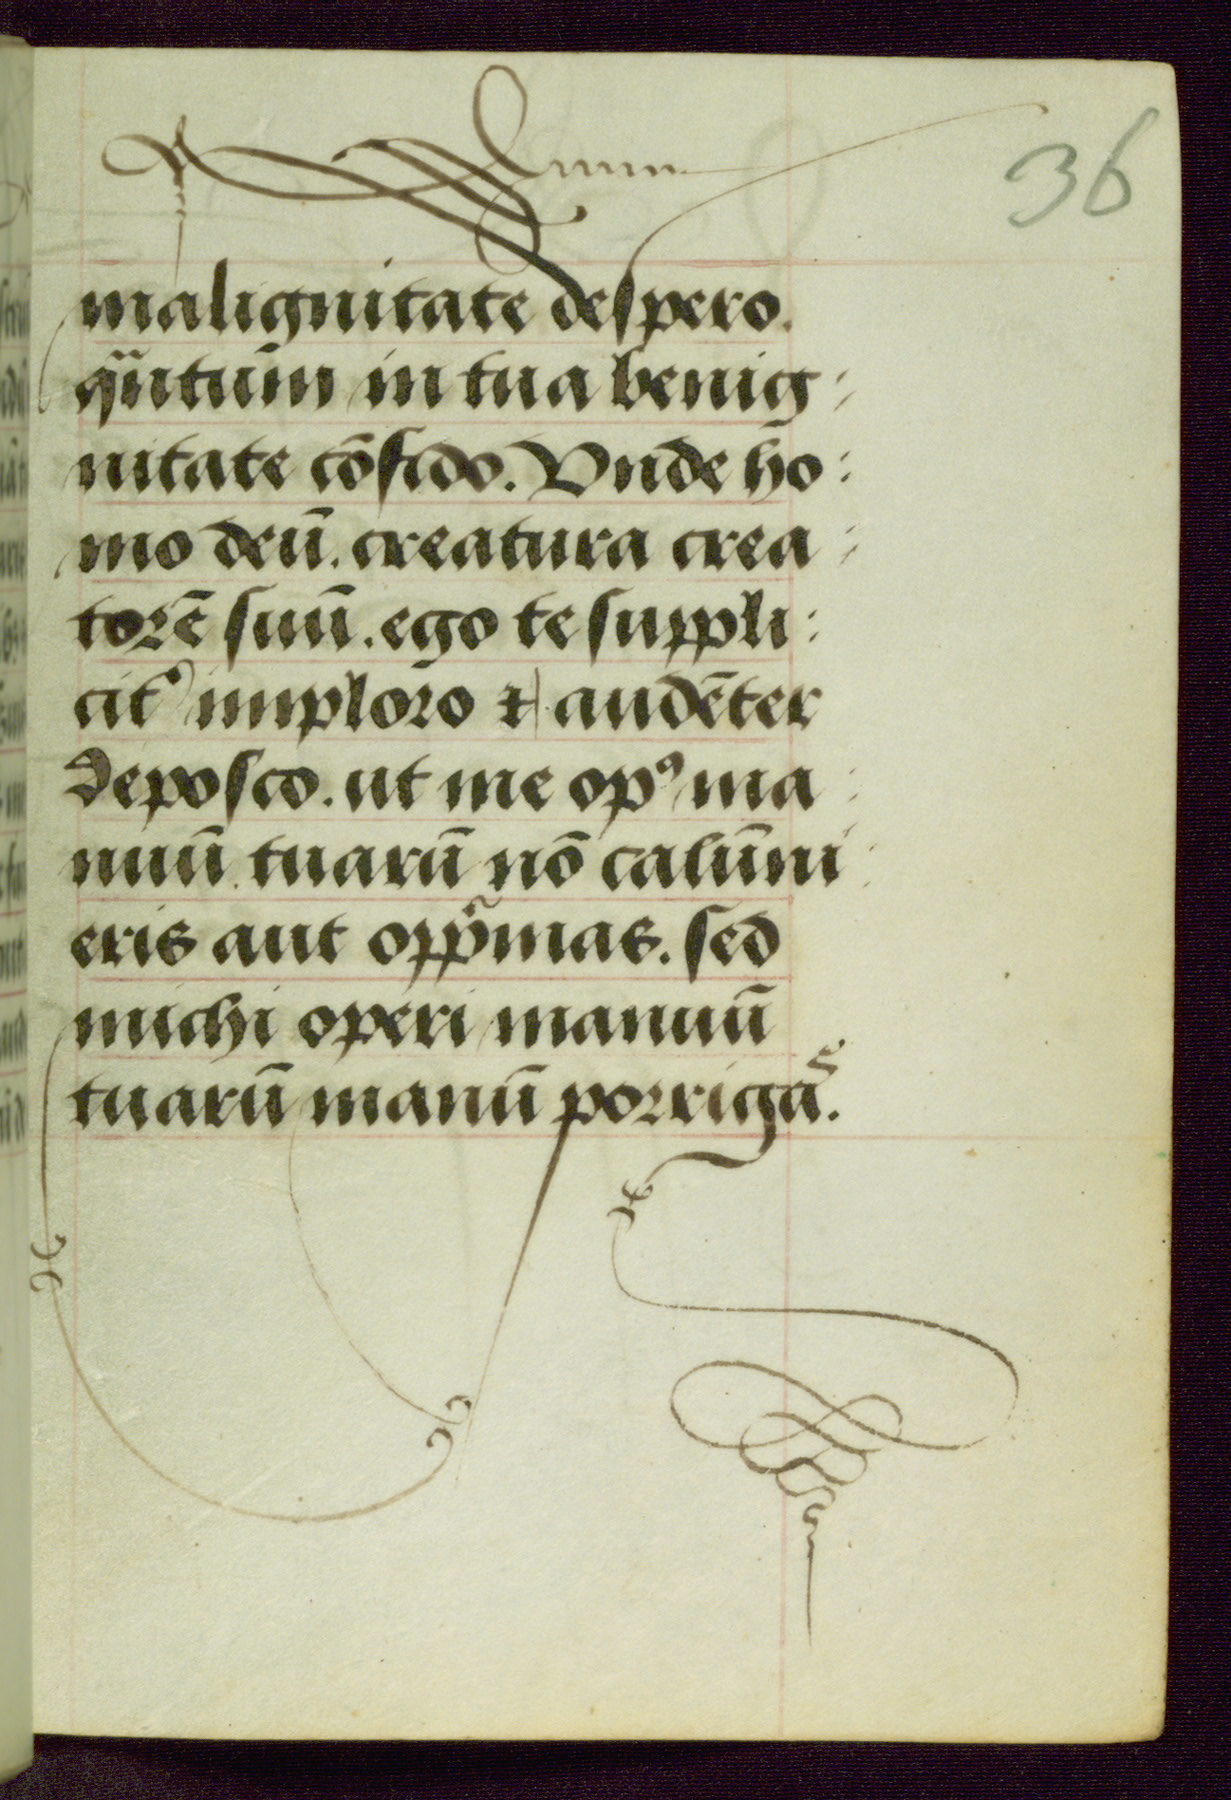 36
malignitate despero.
qͣntum̄ in tua benig:
nitate cōfido. Vnde ho:
mo deū. creatura crea:
torē suū. ego te suppli:
cit᷒ imploro & audēter
deposco. ut me opꝰ ma:
nuū tuarū nō calūmni:
eris aut oppͥmas. sed
michi operi manuū
tuarū manū porrigaˢ.